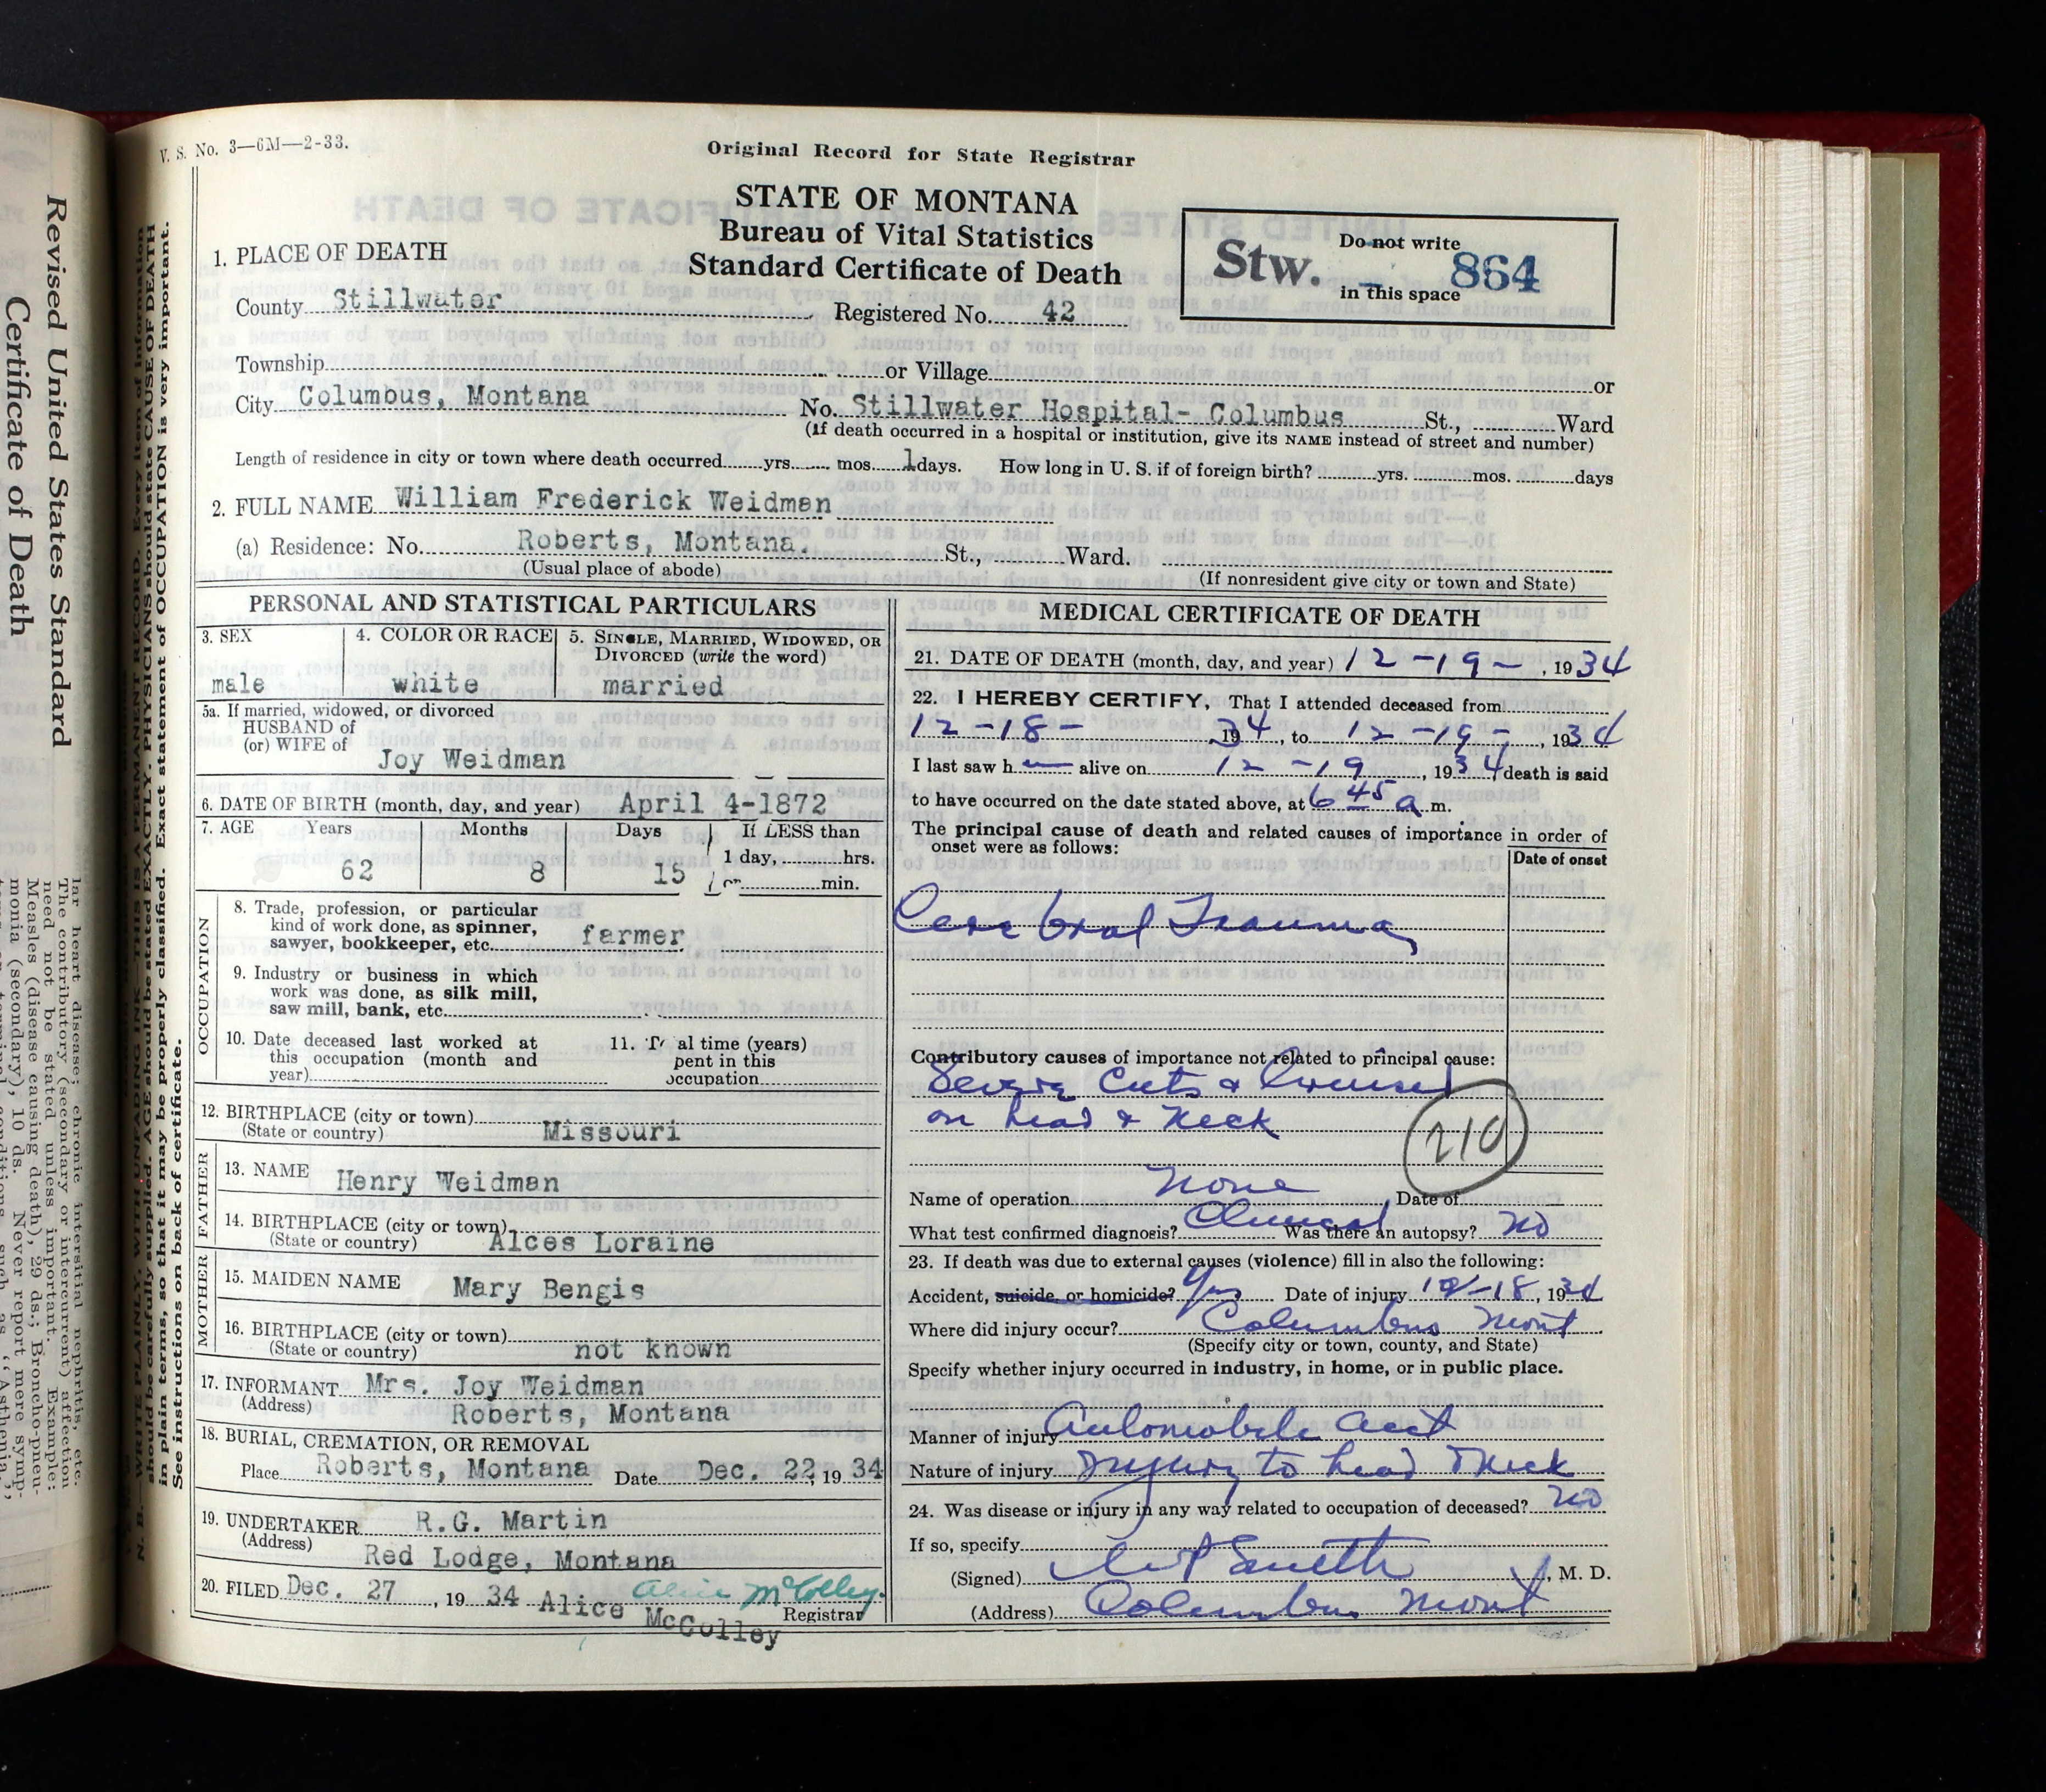 V. S. No. 3—6M—2-33.
Original Record for State Registrar
STATE OF MONTANA
Bureau of Vital Statistics
Standard Certificate of Death
Stw. - 864
Do not write
in this space
1. PLACE OF DEATH
County Stillwater
Registered No. 42
Township or Village or
City Columbus, Montana No. Stillwater Hospital- Columbus St., Ward
(If death occurred in a hospital or institution, give its NAME instead of street and number)
Length of residence in city or town where death occurred yrs. mos. 1 days. How long in U. S. if of foreign birth? yrs. mos. days
2. FULL NAME William Frederick Weidman
(a) Residence: No. Roberts, Montana. St., Ward.
(Usual place of abode) (If nonresident give city or town and State)
PERSONAL AND STATISTICAL PARTICULARS
3. SEX 4. COLOR OR RACE 5. SINGLE, MARRIED, WIDOWED, OR
DIVORCED (write the word)
male white married
5a. If married, widowed, or divorced
HUSBAND of
(or) WIFE of
Joy Weidman
6. DATE OF BIRTH (month, day, and year) April 4-1872
7. AGE Years Months Days If LESS than
1 day, hrs.
62 8 15 or min.
OCCUPATION
8. Trade, profession, or particular
kind of work done, as spinner,
sawyer, bookkeeper, etc. farmer
9. Industry or business in which
work was done, as silk mill,
saw mill, bank, etc.
10. Date deceased last worked at
this occupation (month and
year)
11. T al time (years)
pent in this
occupation
12. BIRTHPLACE (city or town)
(State or country) Missouri
FATHER
13. NAME Henry Weidman
14. BIRTHPLACE (city or town)
(State or country) Alces Loraine
MOTHER
15. MAIDEN NAME Mary Bengis
16. BIRTHPLACE (city or town)
(State or country) not known
17. INFORMANT Mrs. Joy Weidman
(Address) Roberts, Montana
18. BURIAL, CREMATION, OR REMOVAL
Place Roberts, Montana Date Dec. 22, 19 34
19. UNDERTAKER R.G. Martin
(Address) Red Lodge, Montana
20. FILED Dec. 27, 19 34 Alice McColley Alice McColley.
Registrar
MEDICAL CERTIFICATE OF DEATH
21. DATE OF DEATH (month, day, and year) 12-19-, 1934
22. I HEREBY CERTIFY, That I attended deceased from
12-18- 1934, to 12-19-, 1934
I last saw h alive on 12-19, 1934 death is said
to have occurred on the date stated above, at 6 45 a m.
The principal cause of death and related causes of importance in order of
onset were as follows:
Date of onset
Cerebral Trauma
Contributory causes of importance not related to principal cause:
Severe Cuts & bruises
on head & neck
210
Name of operation None Date of
What test confirmed diagnosis? Clinical Was there an autopsy? No
23. If death was due to external causes (violence) fill in also the following:
Accident, suicide, or homicide? Yes Date of injury 12-18, 1934
Where did injury occur? Columbus Mont
(Specify city or town, county, and State)
Specify whether injury occurred in industry, in home, or in public place.
Manner of injury Automobile Acct
Nature of injury Injury to head & neck
24. Was disease or injury in any way related to occupation of deceased? No
If so, specify
(Signed) Smith, M. D.
(Address) Columbus Mont
N. B.—WRITE PLAINLY, WITH UNFADING INK—THIS IS A PERMANENT RECORD. Every item of information
should be carefully supplied. AGE should be stated EXACTLY. PHYSICIANS should state CAUSE OF DEATH
in plain terms, so that it may be properly classified. Exact statement of OCCUPATION is very important.
See instructions on back of certificate.
Revised United States Standard
Certificate of Death
lar heart disease; chronic interstitial nephritis, etc.
The contributory (secondary or intercurrent) affection
need not be stated unless important. Example:
Measles (disease causing death), 29 ds.; Broncho-pneu-
monia (secondary), 10 ds. Never report mere symp-